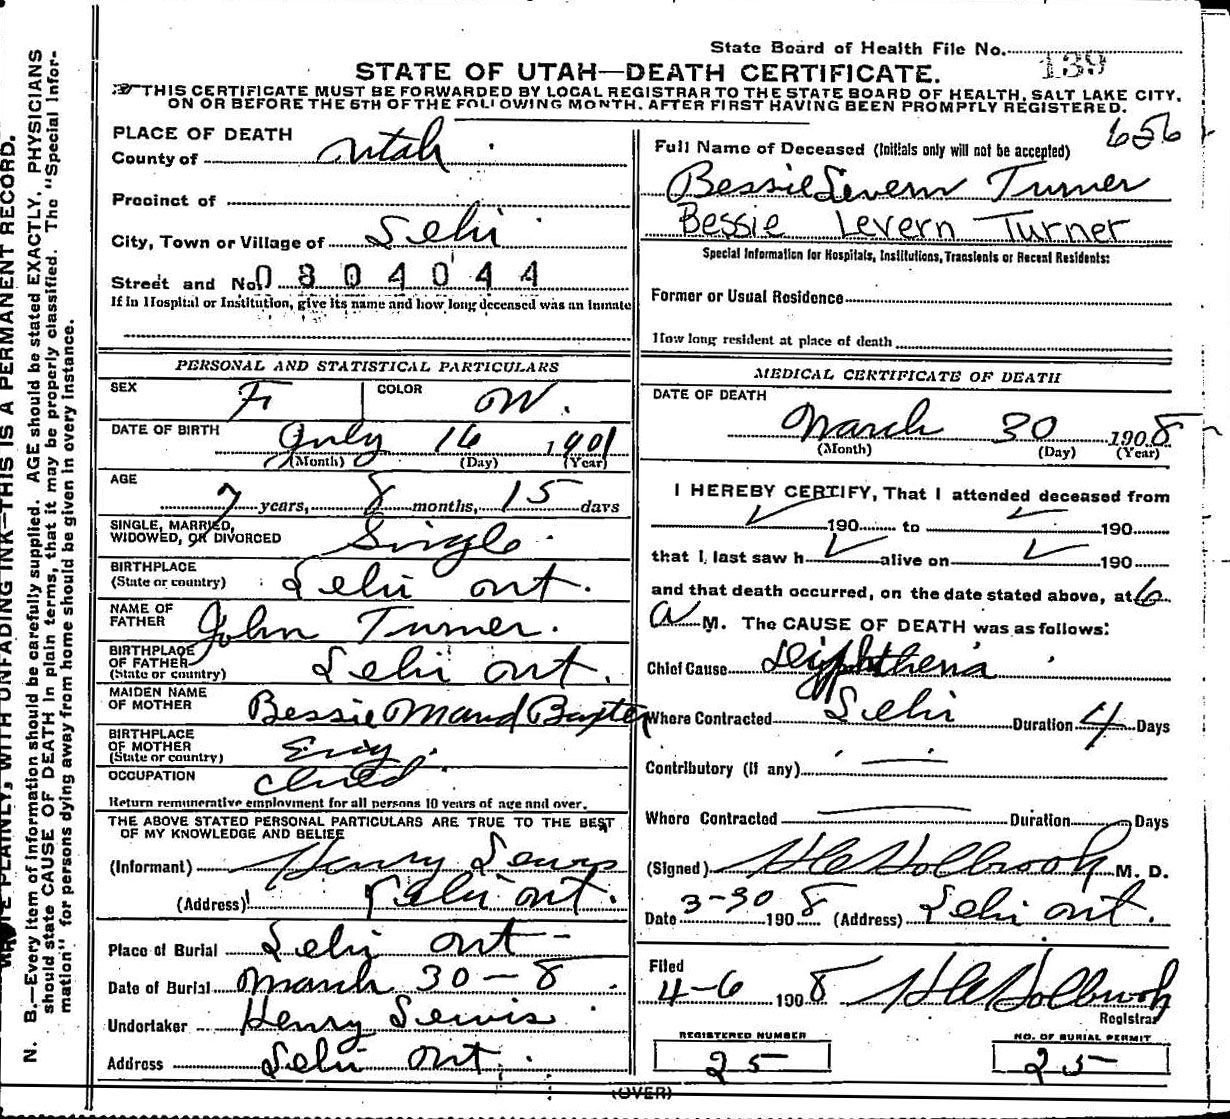 State Board of Health File No. 139
STATE OF UTAH—DEATH CERTIFICATE.
THIS CERTIFICATE MUST BE FORWARDED BY LOCAL REGISTRAR TO THE STATE BOARD OF HEALTH, SALT LAKE CITY,
ON OR BEFORE THE 5TH OF THE FOLLOWING MONTH, AFTER FIRST HAVING BEEN PROMPTLY REGISTERED.
PLACE OF DEATH
County of Utah
Precinct of
City, Town or Village of Lehi
Street and No. 0 8 0 4 0 4 4
If in Hospital or Institution, give its name and how long deceased was an inmate
PERSONAL AND STATISTICAL PARTICULARS
SEX F COLOR W.
DATE OF BIRTH July 16 1901
(Month) (Day) (Year)
AGE
7 years, 8 months, 15 days
SINGLE, MARRIED,
WIDOWED, OR DIVORCED Single
BIRTHPLACE
(State or country) Lehi Ut.
NAME OF
FATHER John Turner.
BIRTHPLACE
OF FATHER
(State or country) Lehi Ut.
MAIDEN NAME
OF MOTHER Bessie Maud Baxter
BIRTHPLACE
OF MOTHER
(State or country) Eng.
OCCUPATION Child
Return remunerative employment for all persons 10 years of age and over.
THE ABOVE STATED PERSONAL PARTICULARS ARE TRUE TO THE BEST
OF MY KNOWLEDGE AND BELIEF
(Informant) Henry Lewis
(Address) Lehi Ut.
Place of Burial Lehi Ut
Date of Burial March 30 - 8
Undertaker Henry Lewis
Address Lehi Ut.
656
Full Name of Deceased (Initials only will not be accepted)
Bessie Levern Turner
Bessie Levern Turner
Special Information for Hospitals, Institutions, Transients or Recent Residents:
Former or Usual Residence
How long resident at place of death
MEDICAL CERTIFICATE OF DEATH
DATE OF DEATH
March 30 1908
(Month) (Day) (Year)
I HEREBY CERTIFY, That I attended deceased from
190 to 190
that I last saw h alive on 190
and that death occurred, on the date stated above, at 6
a M. The CAUSE OF DEATH was as follows:
Chief Cause Diphtheria
Where Contracted Lehi Duration 4 Days
Contributory (if any)
Where Contracted Duration Days
(Signed) Holbrook M. D.
Date 3-30 1908 (Address) Lehi Ut.
Filed
4-6 1908 Holbrook
Registrar
REGISTERED NUMBER
25
NO. OF BURIAL PERMIT
25
(OVER)
PLAINLY, WITH UNFADING INK—THIS IS A PERMANENT RECORD.
N. B.—Every item of information should be carefully supplied. AGE should be stated EXACTLY. PHYSICIANS
should state CAUSE OF DEATH in plain terms, that it may be properly classified. The "Special Infor-
mation" for persons dying away from home should be given in every instance.